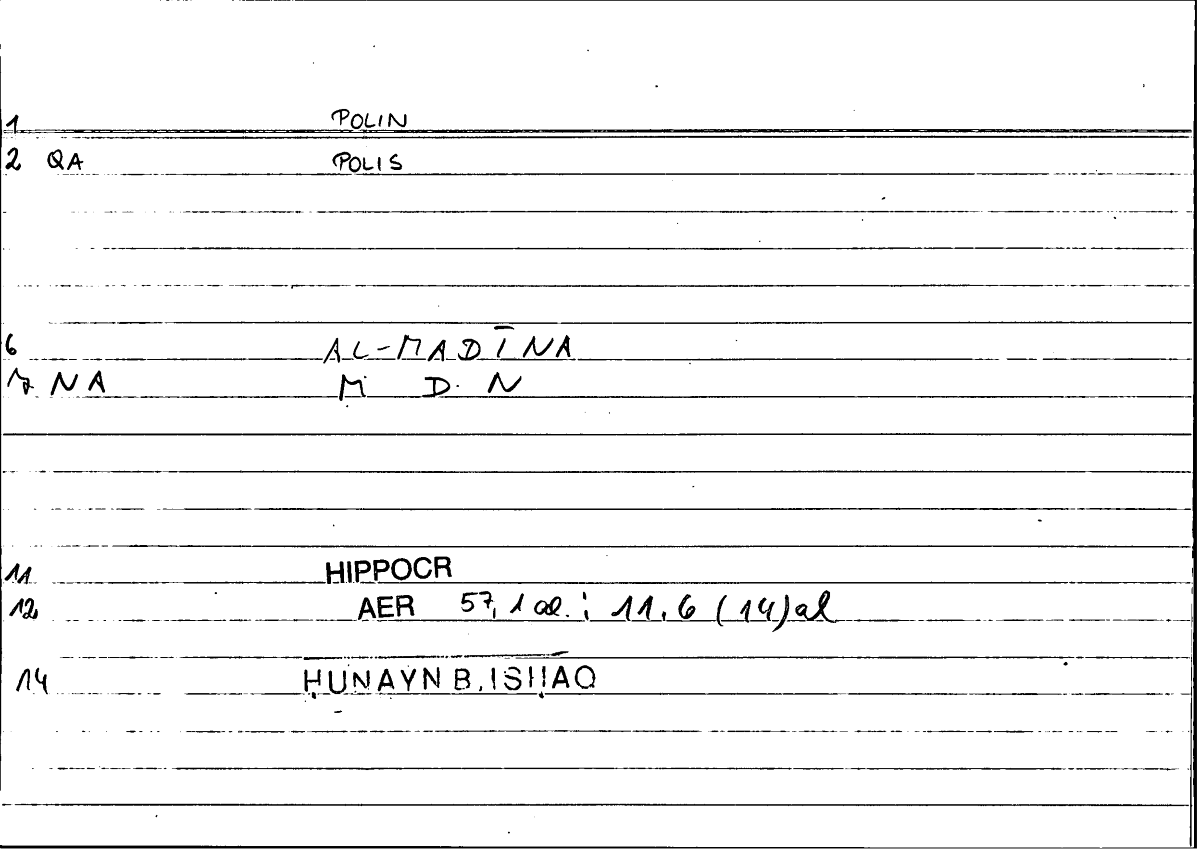 1 POLIN
2 QA POLIS
6 AL-MADĪNA
7 NA M D N
11 HIPPOCR
12 AER 57,1 al.: 11.6 (14) al
14 ḤUNAYN B. ISḤĀQ